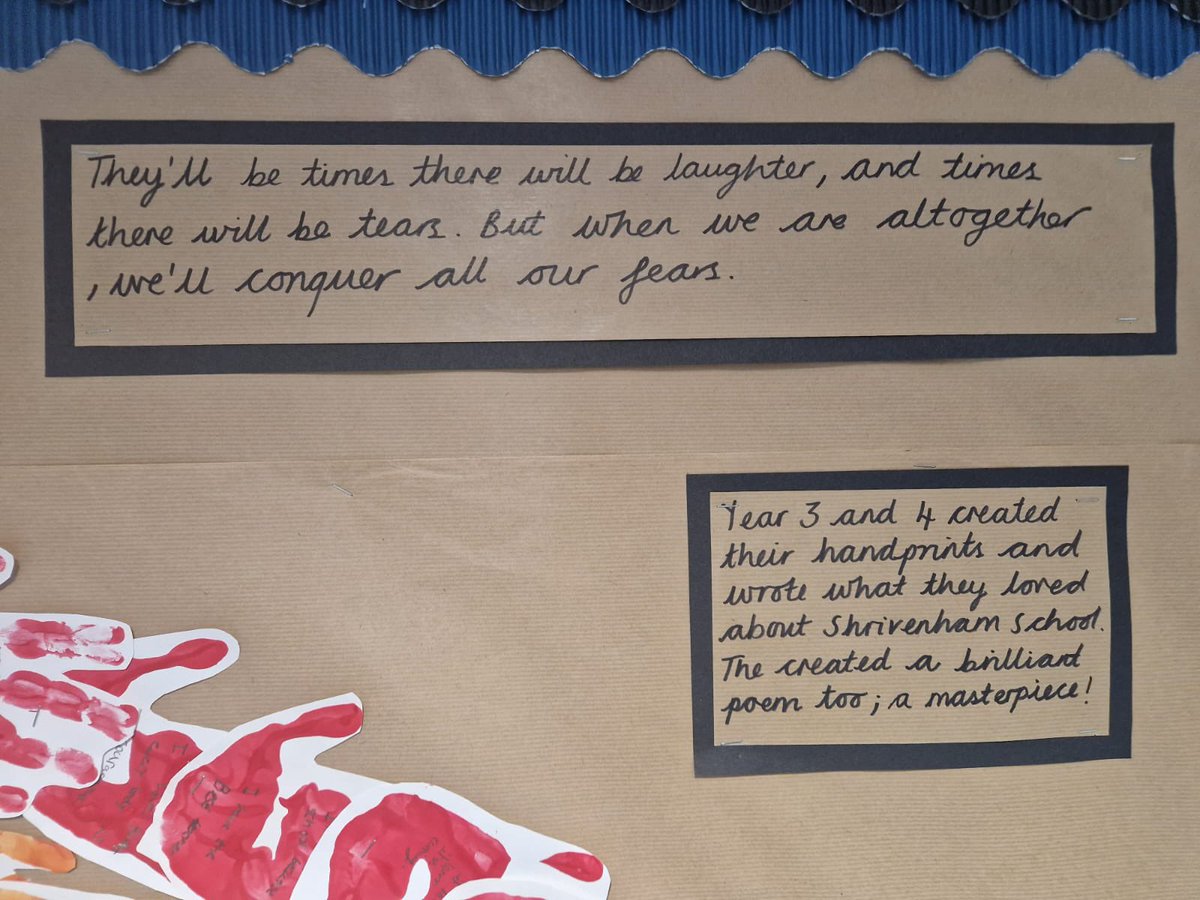 They'll be times there will be laughter, and times
there will be tears. But when we are altogether
, we'll conquer all our fears.
Year 3 and 4 created
their handprints and
wrote what they loved
about Shrivenham School.
The created a brilliant
poem too; a masterpiece!